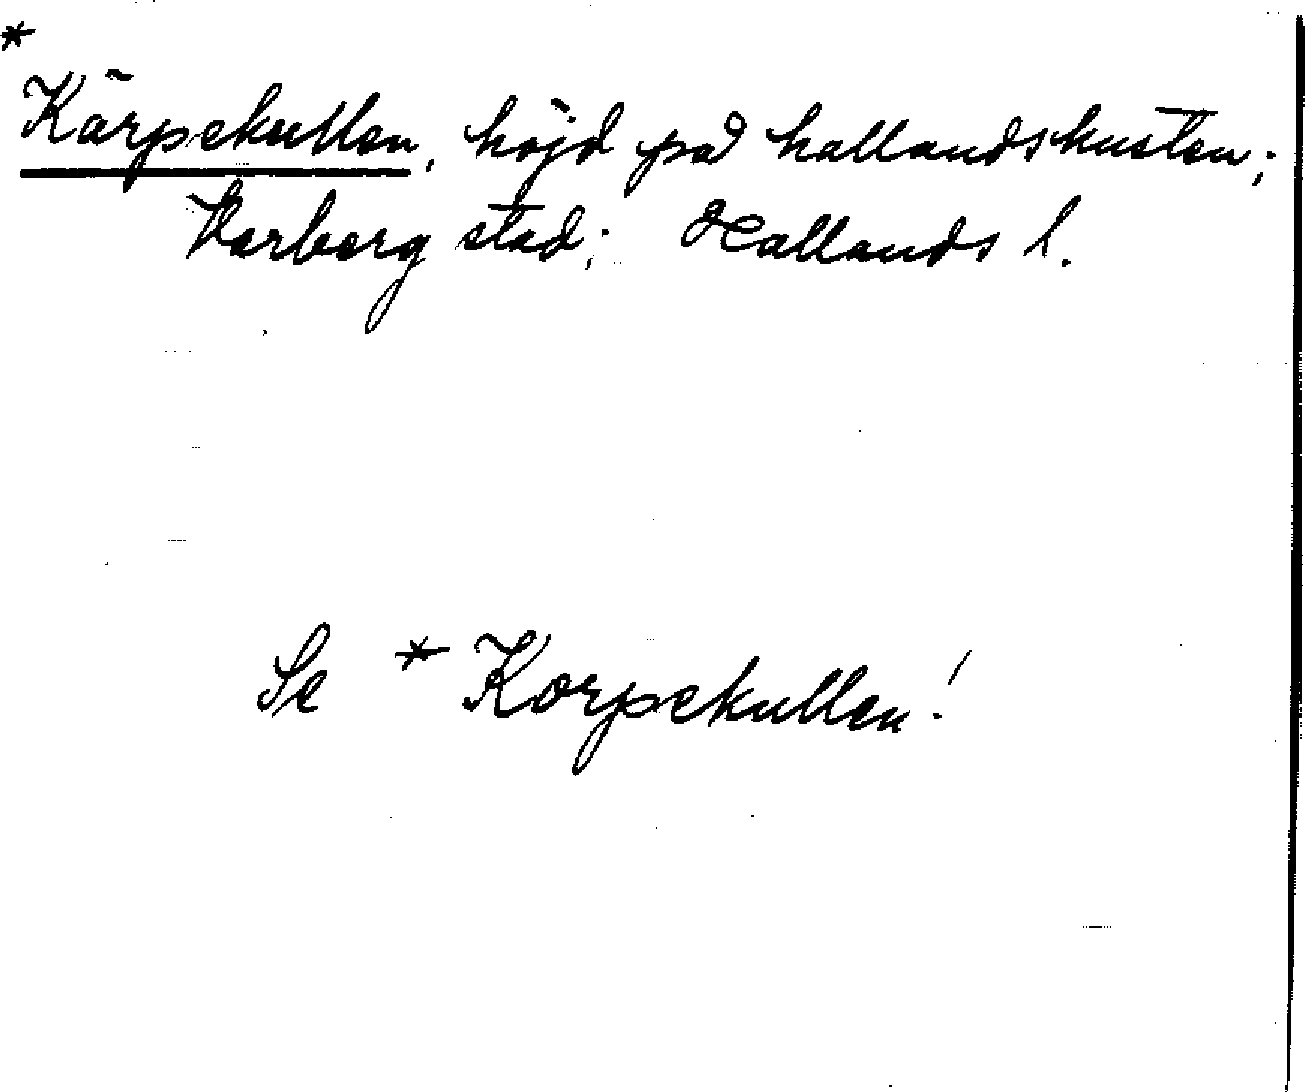 *
Kärpekullen, höjd på hallandskusten;
Varberg stad; Hallands l.
Se * Korpekullen!